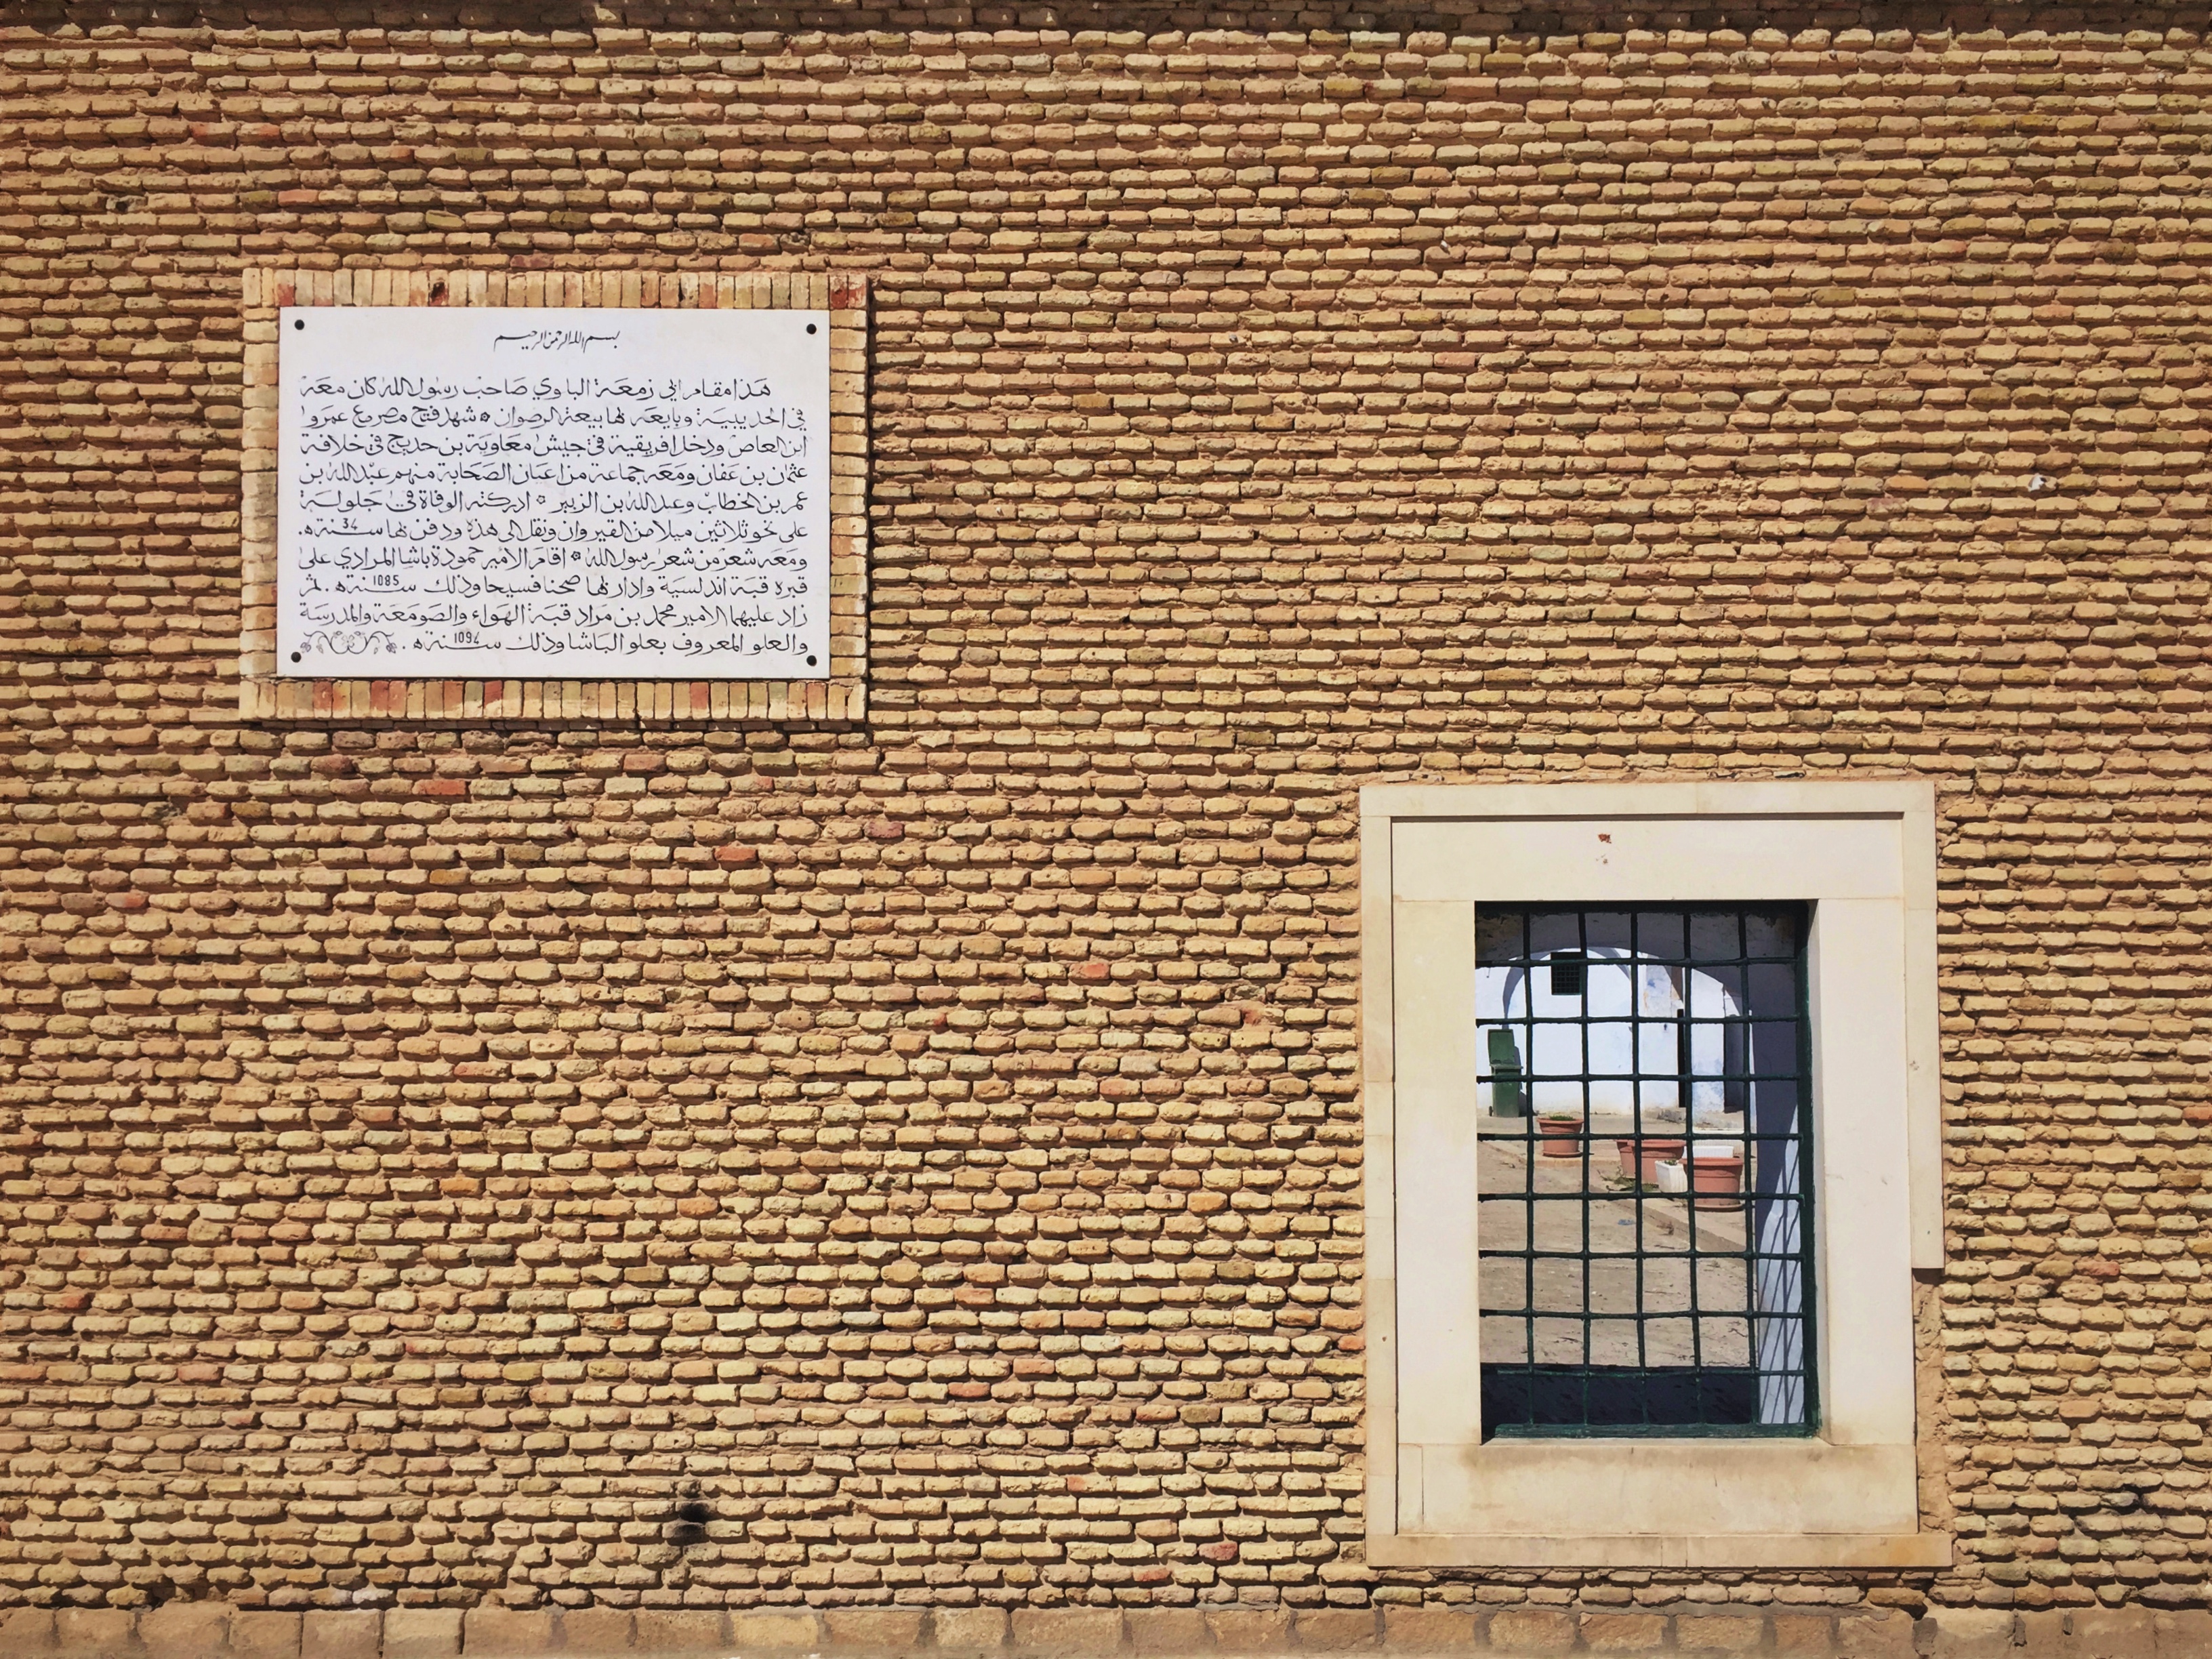 بسم الله الرحمن الرحيم
هَذا مقام ابي زمعَة الباوي صَاحب رسُول الله كان معَه
في الحديبيَة وبايعَه بها بيعة الرضوان * شهد فتح مصر مع عمروا
ابن العاص ودخل افريقية في جيش معَاويَة بن حديج في خلافة
عثمان بن عَفان ومَعَه جماعة من اعيان الصَحَابة منهم عبد الله بن
عمر بن الخطاب وعبد الله بن الزبير * ادركته الوفاة في جَلولَة
على نحو ثلاثين ميلا من القيروان ونقل الى هذه ودفن بها سنة 34 ه.
ومَعَه شعر من شعر رسول الله * اقامَ الامير حمودة باشا المرادي على
قبره قبَة اندلسيَة وادار بها صحنا فسيحا وذلك سنة 1085 ه. ثم
زاد عليهما الامير محمد بن مَراد قبَة الهَواء والصَومَعَة والمدرسَة
والعلو المعروف بعلو البَاشا وذلك سنة 1094 ه.